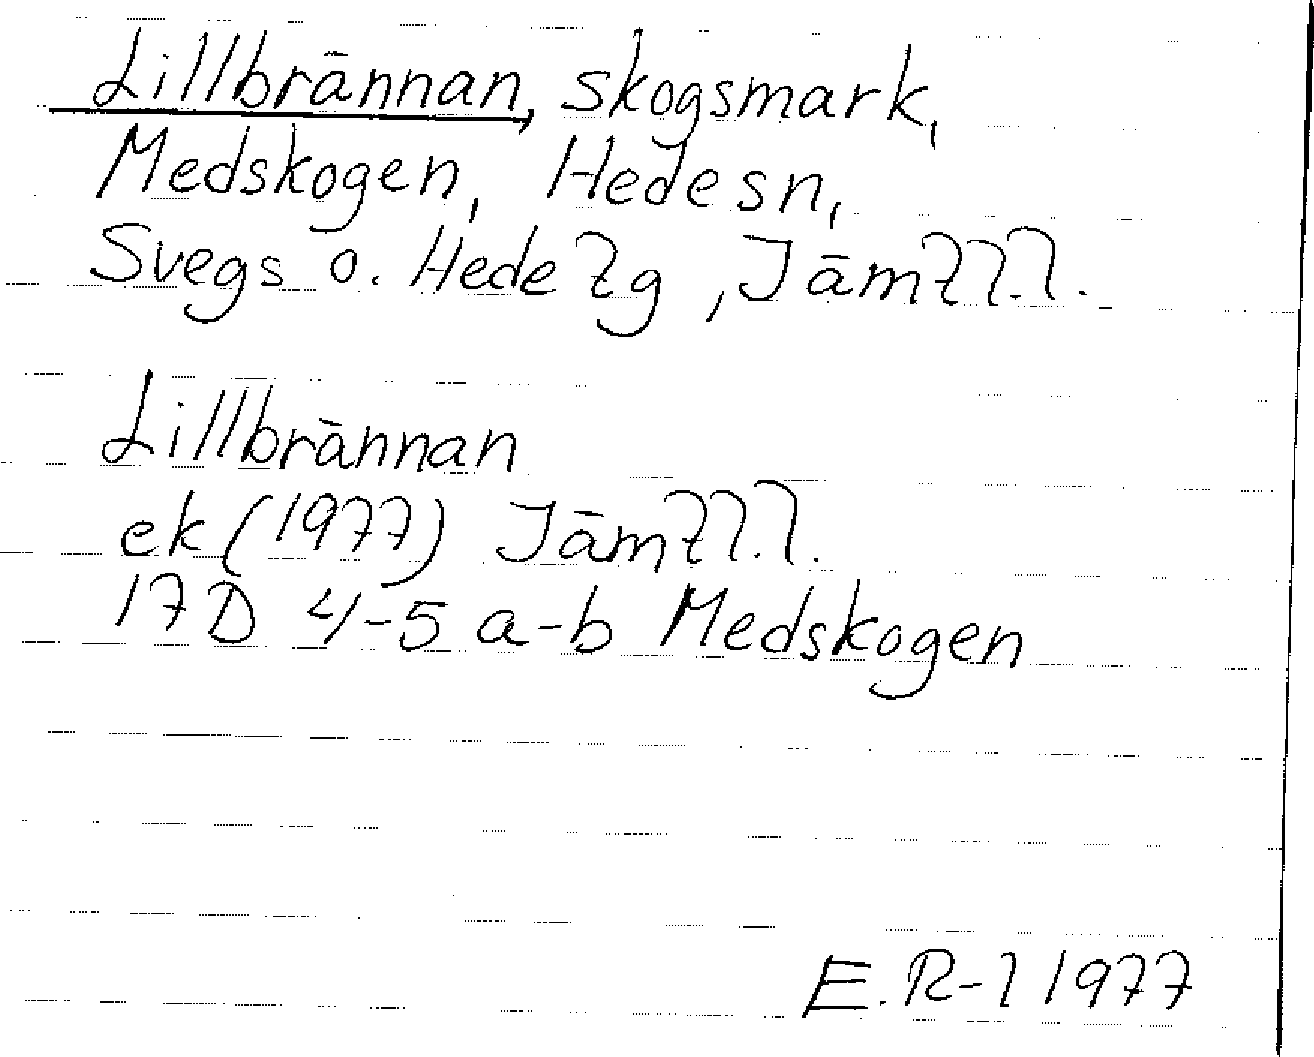 Lillbrännan, skogsmark,
Medskogen, Hede sn,
Svegs o. Hede tg, Jämtl.l.
Lillbrännan
ek (1977) Jämtl.l.
17D 4-5 a-b Medskogen
E. R-l 1977